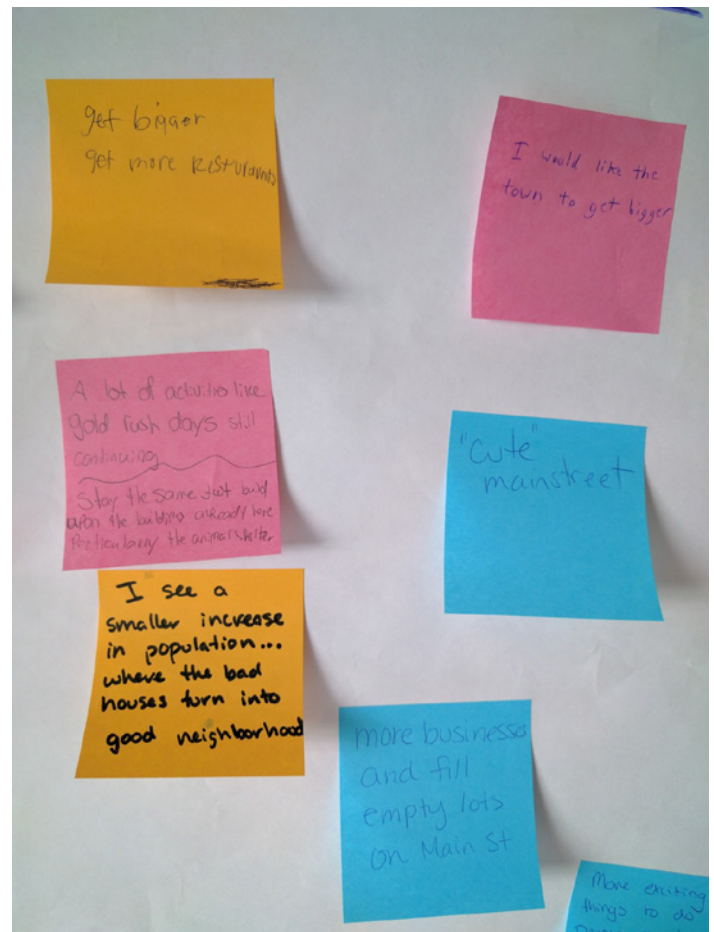 get bigger
get more Resturaunts
I would like the
town to get bigger
A lot of activities like
gold rush days still
continuing
Stay the same Just build
upon the building already here
Particularry the animal shelter
"cute"
mainstreet
I see a
smaller increase
in population...
where the bad
houses turn into
good neighborhood
more businesses
and fill
empty lots
on Main St
More exciting
things to do